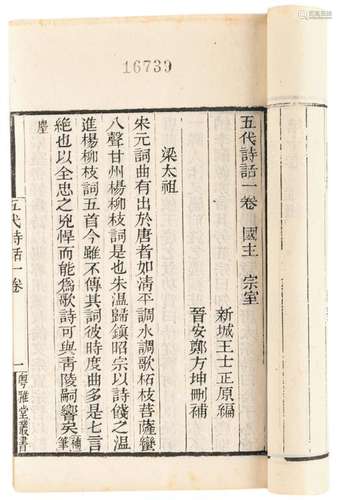 16739
五代詩話一卷 國主 宗室
新城王士正原編
晉安鄭方坤刪補
梁太祖
宋元詞曲有出於唐者如淸平調水調歌柘枝菩薩蠻
八聲甘州楊柳枝詞是也朱温歸鎭昭宗以詩餞之温
進楊柳枝詞五首今雖不傳其詞彼時度曲多是七言
絶也以全忠之兇悍而能爲歌詩可與靑陵嗣響矣筆
麈
補
五代詩話一卷
一
粵雅堂叢書